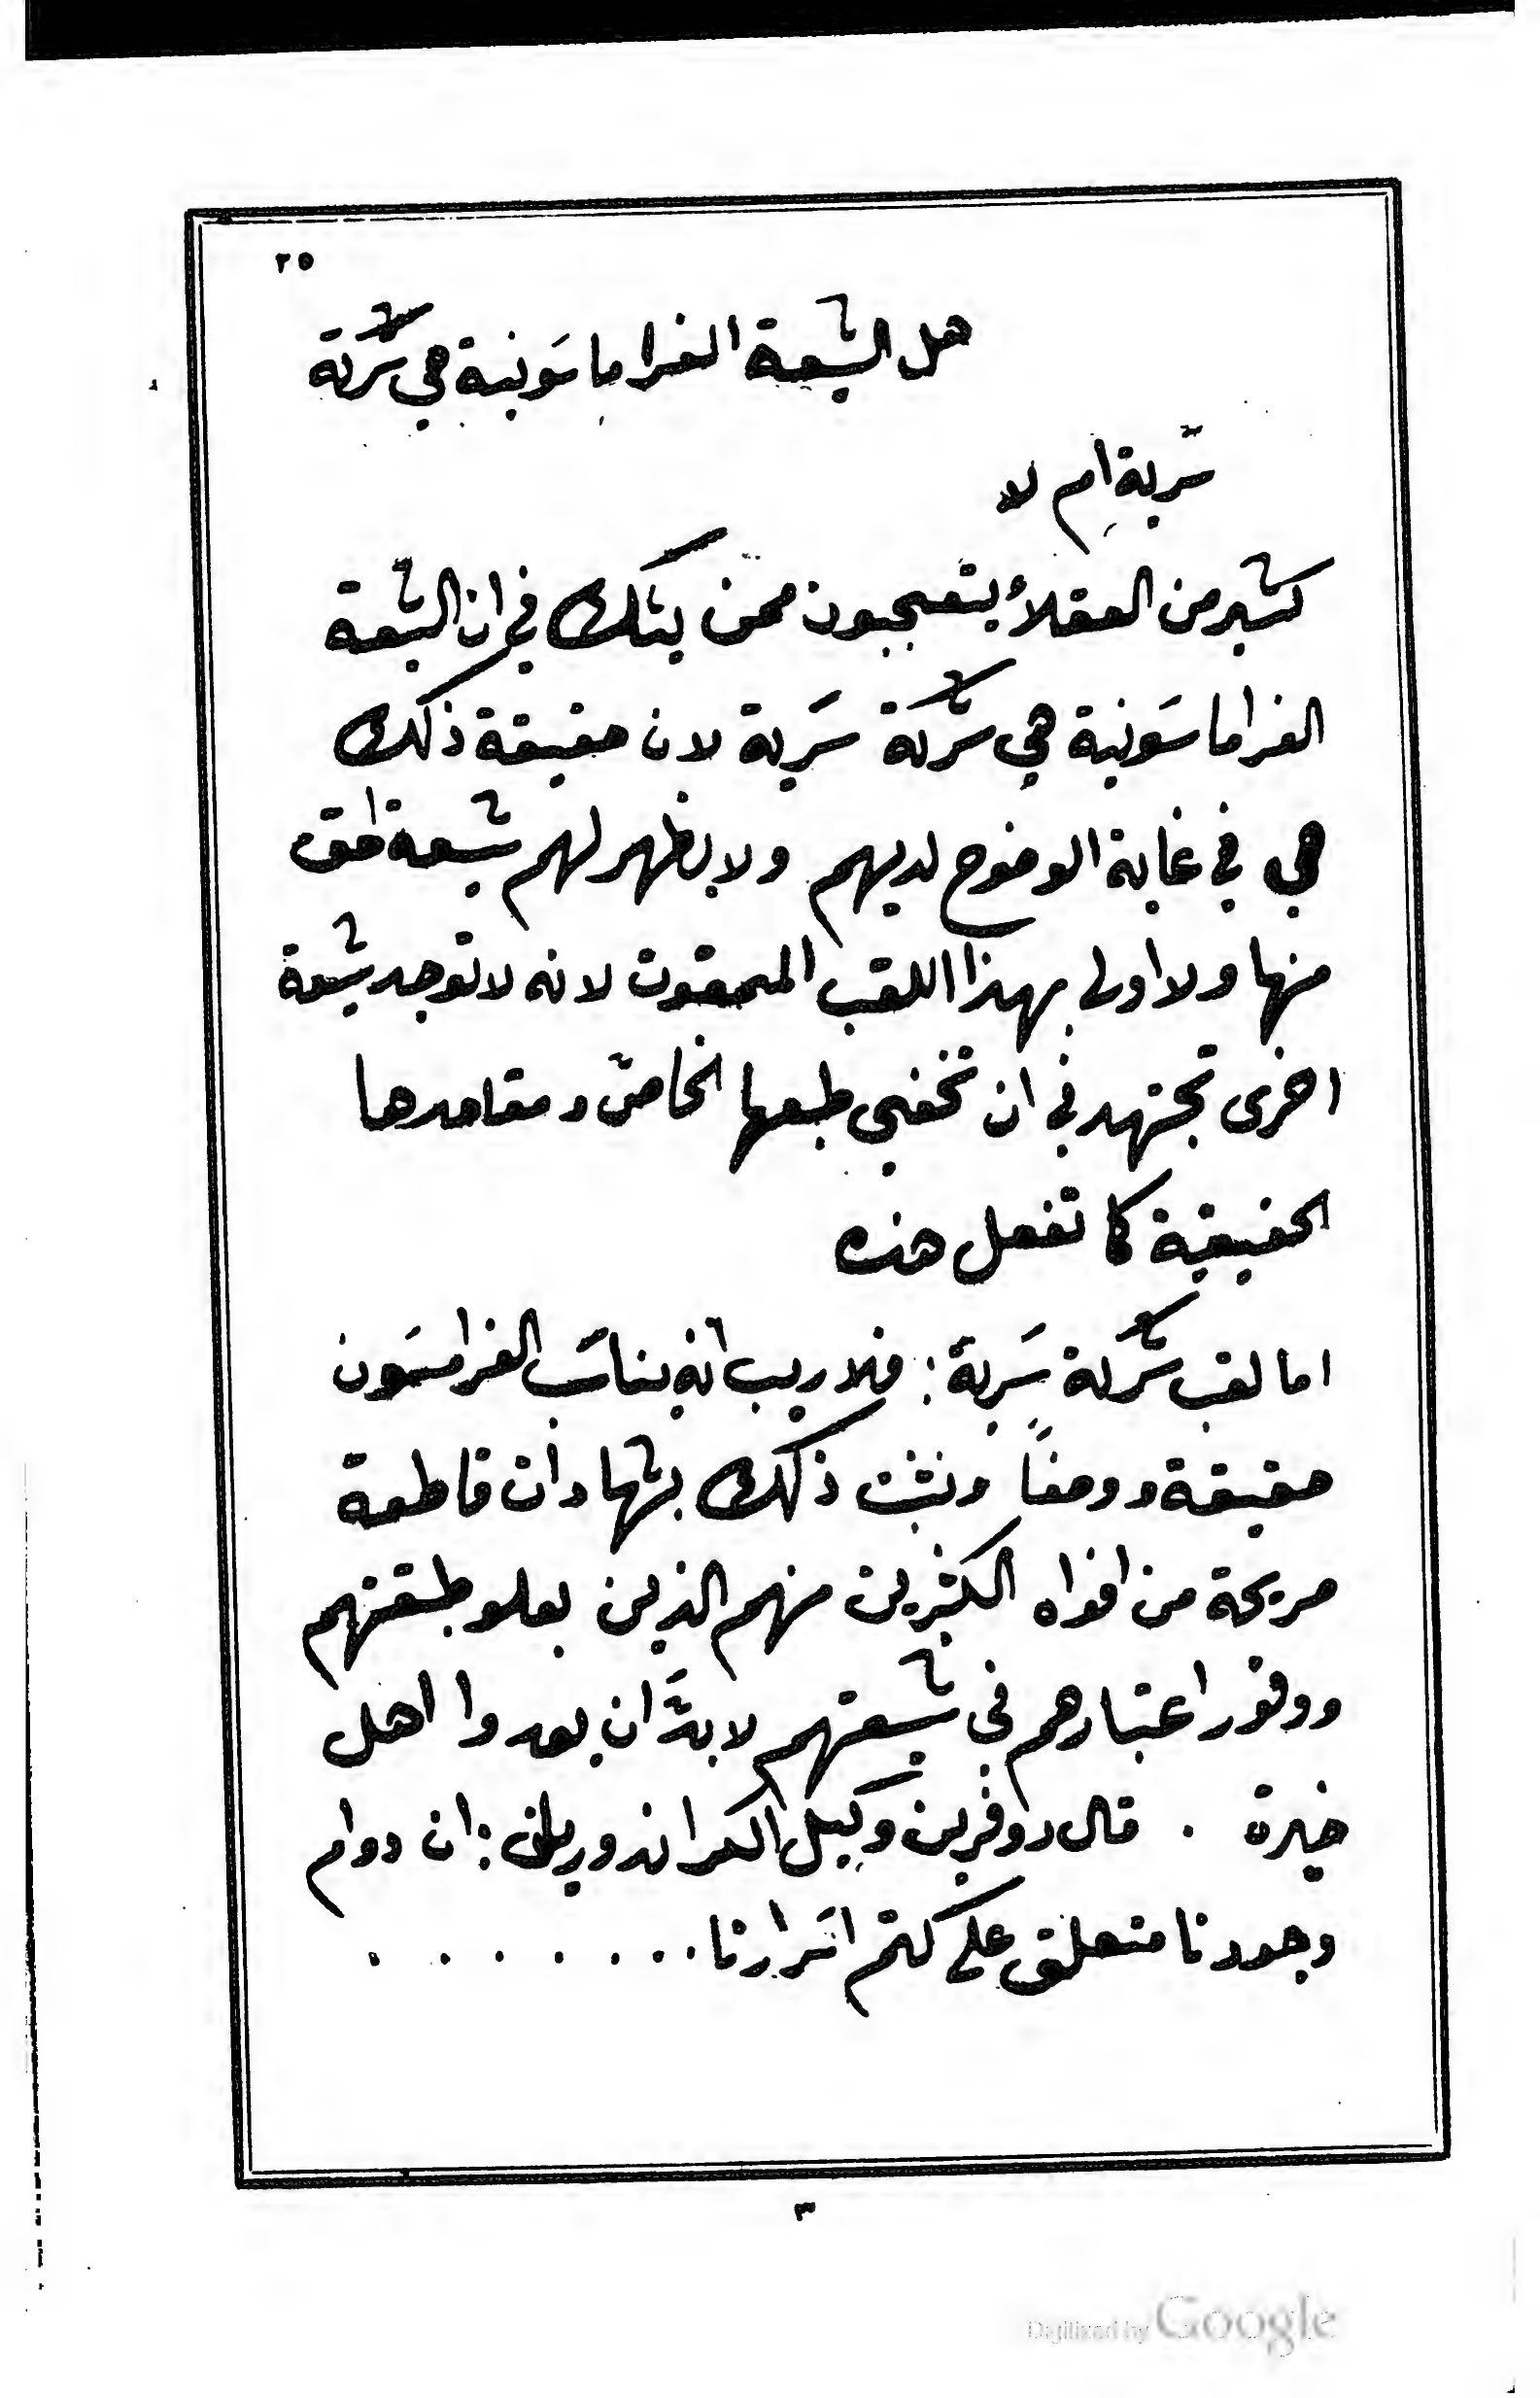 ٢٥
هل الشيعة الفراماسونية هي شركة
سرّية ام لا
كثير من العقلاء يتعجبون ممن يشك في ان الشيعة
الفراماسونية هي شركة سرية لان حقيقة ذلك
هي في غاية الوضوح لديهم ولا يظهر لهم شيعة احق
منها ولا اولى بهذا اللقب الممقوت لانه لا توجد شيعة
اخرى تجتهد في ان تخفي طبعها الخاص ومقاصدها
الحقيقية كما تفعل هذه
اما لقب شركة سرية : فلا ريب انه يناسب الفرامسون
حقيقة ووصفاً ونثبت ذلك بشهادات قاطعة
صريحة من افواه الكثيرين منهم الذين بعلو طبقتهم
ووفور اعتبارهم في شيعتهم لا بدَّ ان يعدوا اهل
خبرة . قال دوفرين وكيل الكراندوريان : ان دوام
وجودنا متعلق على كتم اسرارنا . . . . . . . .
٣
Digitized by Google